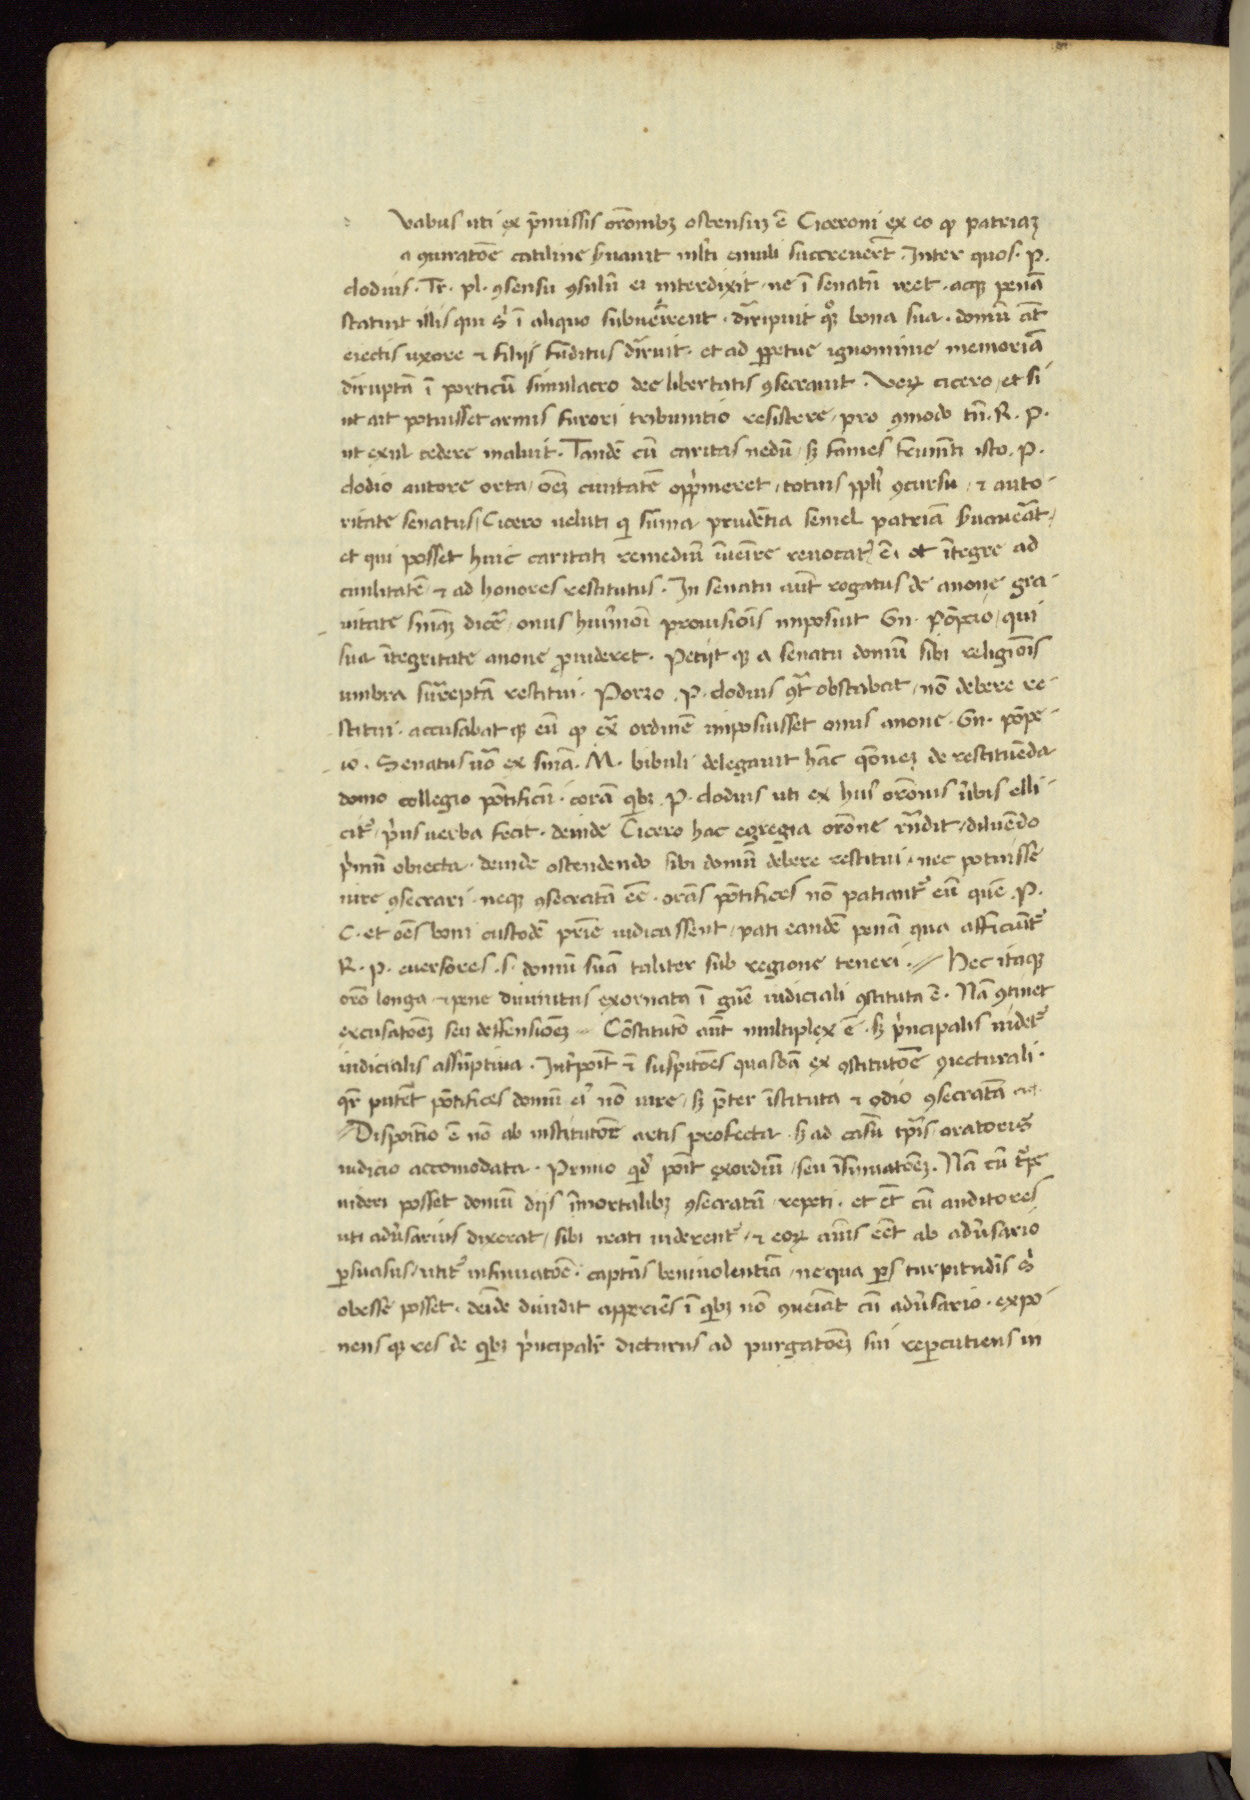 Vabus uti ex p̄missis orōnibꝫ ostensuꝫ ē Ciceroni ex eo ꝙ patriaꝫ
a ꝯiuratōe catiline s̄uauit ml̄ti emuli succreuer̄t. Inter quos. P.
clodius. Tr. pl. ꝯsensu ꝯsulū ei interdixit. ne ī senatū iret. acqꝫ penā
statuit illis qui s͛ ī aliquo subuenirent. diripuit qꝫ bona sua. domū at̄
eiectis uxore ⁊ filijs fūditus diruit. et ad ꝑpetue ignominie memoriā
diruptā ī porticū simulacro dee libertatis ꝯsecrauit. Veꝝ cicero, et si
ut ait potuisset armis furori tribunitio resistere, pro ꝯmodo tn̄. R. P.
ut exul cedere maluit. Tandē cū caritas nedū, sꝫ fames frum̄ti isto. P.
clodio autore orta, oēꝫ ciuitatē opp̄meret, totius ppl̄i ꝯcursu, ⁊ auto-
ritate senatus, Cicero ueluti q̄ sūma prudētia semel patriā s̄uauerat,
et qui posset huic caritati remediū īueīre reuocat᷒ ē, et ītegre ad
ciuilitatē ⁊ ad honores restitutus. In senatu aūt rogatus de anone gra-
uitate sniāꝫ dic̄e, onus hui᷒moī prouisiōis imposuit Gn. Pōpeio, qui
sua ītegritate anone ꝓuideret. Petijt qꝫ a senatu domū sibi religiōis
umbra surreptā restitui. Porro. P. clodius ꝯt̄ obstabat, nō debere re-
stitui. accusabat qꝫ eū ꝙ ext̄ ordinē imposuisset onus anone. Gn. pōpe-
io. Senatus uo ex sniā. M. bibuli delegauit hāc q̄oneꝫ de restituēda
domo collegio pōtificū. corā qibꝫ. P. clodius uti ex huis orōnis ūbis elli-
cit᷒, p̄us uerba fecit. deinde Cicero hac egregia orōne rn̄dit, diluēdo
p̄mū obiecta. deinde ostendendo sibi domū debere restitui, nec potuisse
iure ꝯsecrari. neqꝫ ꝯsecratā eē. orās pōtifices nō patiant᷒ eū quē. P.
C. et oēs boni custodē p̄rie iudicassent, pati eandē penā qua afficiūt᷒
R. P. euersores .s. domū suā taliter sub regione teneri. // Hec itaqꝫ
orō longa ⁊ pene diuinitus exornata ī gn̄e iudiciali ꝯstituta ē. Nā ꝯtinet
excusatōeꝫ seu defensiōeꝫ. Cōstitutō aūt multiplex ē. sꝫ p̄ncipalis uidet᷒
iudicialis assūptiua. Int̄poīt ē suspitōes quasdā ex ꝯstitutōe ꝯiecturali.
qr̄ putēt pōtifices domū ei᷒ nō iure, sꝫ p̄ter īstituta ⁊ odio ꝯsecratā
// Dispoitio ē nō ab institutōe artis profecta. sꝫ ad casū tp̄is oratoris
iudicio accomodata. Primo qid̄ poīt exordiū, seu īsinuatōeꝫ. Nā cū t᷒pe
uideri posset domū diis īmortalibꝫ ꝯsecratā, repeti. et et̄ cū auditores
uti adūsarius dixerat, sibi irati uiderent᷒, ⁊ eoꝝ aīus eēt ab adūsario
ꝑsuasus, utit᷒ insinuatōe. captās beniuolentiā, ne qua ꝑs turpitudīs s͛
obesse posset. deīde diuidit apperiēs ī qibꝫ nō ꝯueiāt cū adūsario. expo-
nens qꝫ res de qibꝫ p̄ncipalr̄ dicturus ad purgatōeꝫ sui repercutiens in